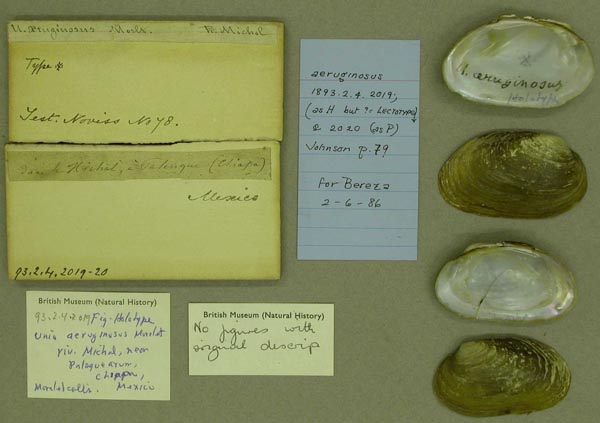 U. æruginosus Morlt. R. Michol
Type
Test. Noviss No 78.
Michol, à Palenque (Chiapa)
Mexico
93.2.4.2019-20
aeruginosus
1893.2.4.2019;
(as H but ?= Lectotype)
& 2020 (as P)
Johnson p. 79
for Bereza
2-6-86
U. æruginosus
Holotype
British Museum (Natural History)
93.2.4.2019 Fig. Holotype
Unio aeruginosus Morelet
riv. Michol, near
Chiapas,
Morelet coll. Mexico
British Museum (Natural History)
No figures with
original descrip